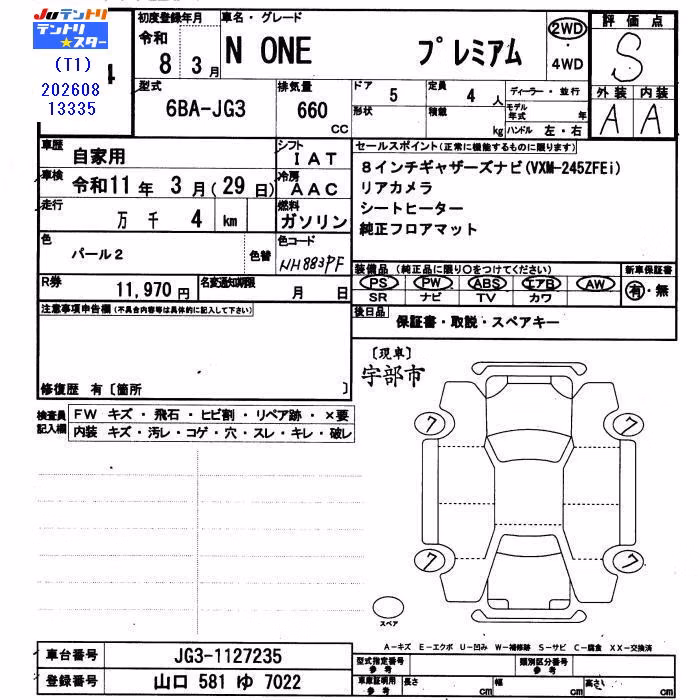 JUテントリ
テントリ
★スター
(T1)
202608
13335
初度登録年月
令和
8 3月
車名・グレード
N ONE プレミアム
2WD
・
4WD
評価点
S
型式
6BA-JG3
排気量
660
CC
ドア 5
形状
定員 4 人
積載 kg
ディーラー・並行
モデル年式 年
ハンドル 左・右
外装 内装
A A
車歴 自家用
シフト IAT
車検 令和11年 3月(29日)
冷房 AAC
走行 万 千 4 km
燃料 ガソリン
色 パール2
色替
色コード NH883PF
R券 11,970円
名変通知期限 月 日
セールスポイント(正常に機能するものに限ります)
8インチギャザーズナビ(VXM-245ZFEi)
リアカメラ
シートヒーター
純正フロアマット
装備品 (純正品に限り○をつけてください)
新車保証書
PS PW ABS エアB AW
有・無
SR ナビ TV カワ
後日品 保証書・取説・スペアキー
注意事項申告欄(不具合内容等は具体的に記入して下さい)
修復歴 有〔箇所 〕
〔現車〕
宇部市
検査員記入欄
FW キズ・飛石・ヒビ割・リペア跡・×要
内装 キズ・汚レ・コゲ・穴・スレ・キレ・破レ
7 7
7 7
スペア
A-キズ E-エクボ U-凹み W-補修跡 S-サビ C-腐食 XX-交換済
車台番号 JG3-1127235
登録番号 山口 581 ゆ 7022
型式指定番号
参考
類別区分番号
参考
車庫証明用
参考
長さ cm 幅 cm 高さ cm